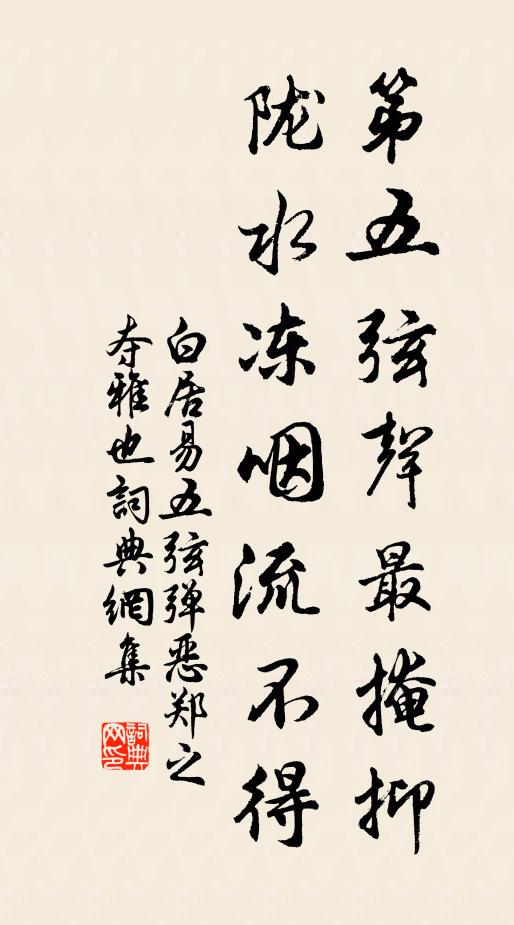 第五弦聲最掩抑
陇水冻咽流不得
白居易五弦弹恶郑之
夺雅也詞典網集
詞典网印